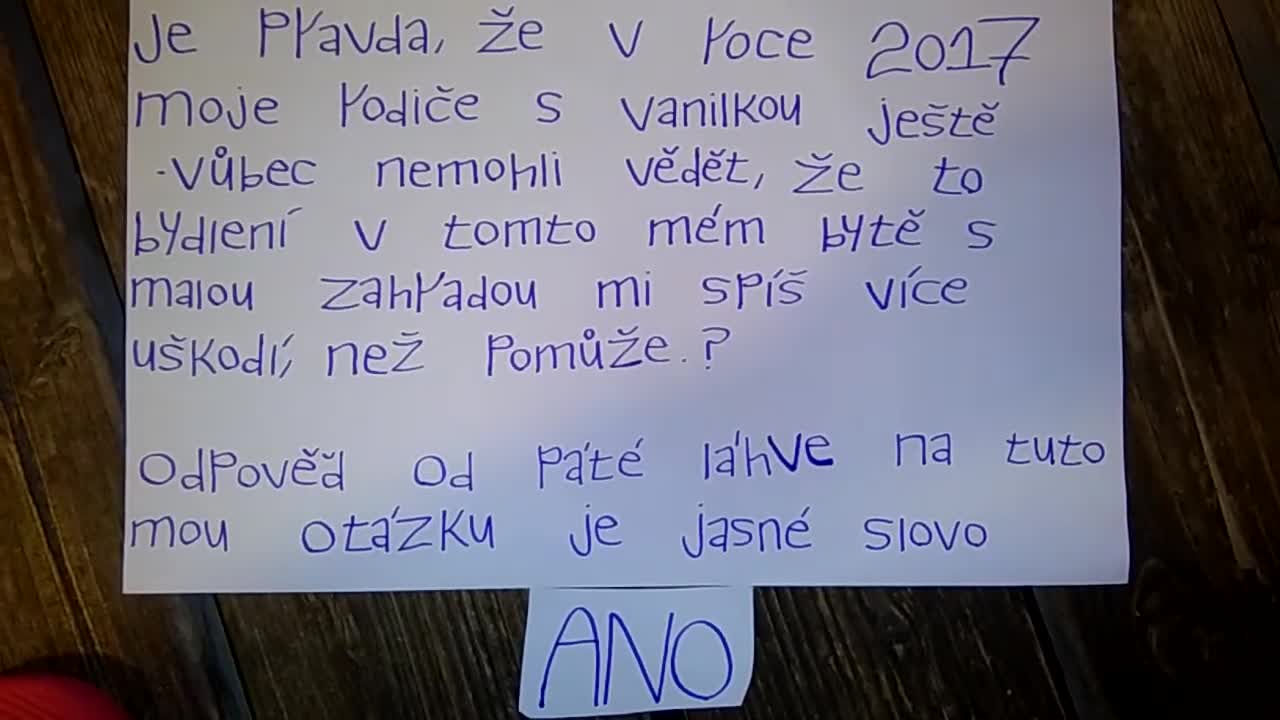 Je pravda, že v roce 2017
moje rodiče s vanilkou ještě
vůbec nemohli vědět, že to
bydlení v tomto mém bytě s
malou zahradou mi spíš více
uškodí, než pomůže.?
Odpověď od páté láhve na tuto
mou otázku je jasné slovo
ANO